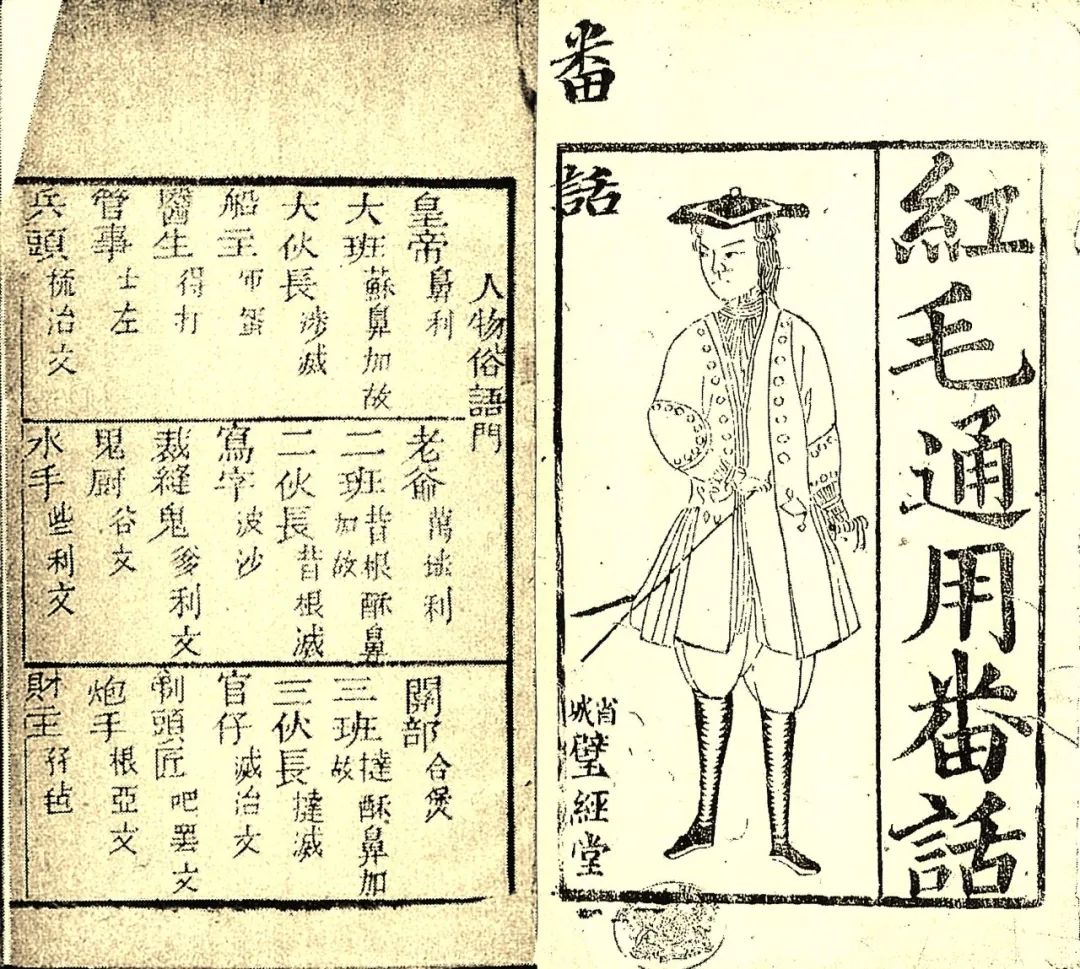 紅毛通用番話
番話
省城璧經堂
人物俗語門
皇帝 鼻利
大班 蘇鼻加故
大伙長 涉滅
船主 蛋
醫生 得打
管事 士左
兵頭 梳治文
老爺 萬利
二班 昔根酥鼻加故
二伙長 昔根滅
寫字 波沙
裁縫鬼 爹利文
鬼厨 谷文
水手 些利文
關部 合煲
三班 撻酥鼻加故
三伙長 撻滅
官仔 滅治文
剃頭匠 吧罢文
炮手 根亞文
財主 孖毡